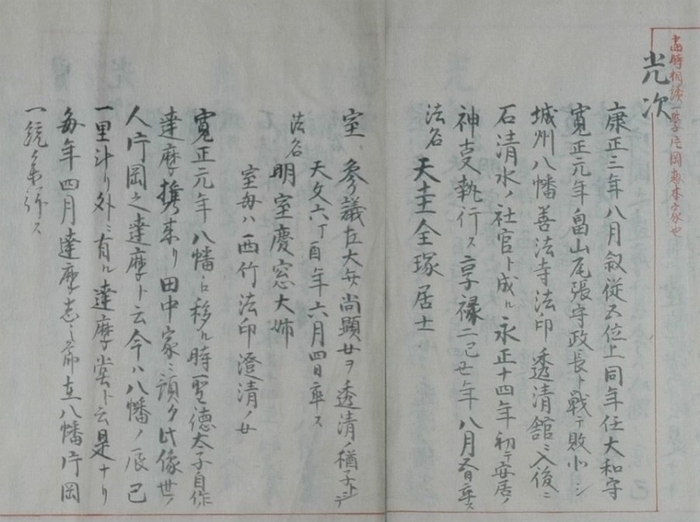 光次
康正三年八月叙従五位上同年任大和守
寛正元年畠山尾張守政長ト戦テ敗北シ
城州八幡善法寺法印透清館ニ入後ニ
石清水ノ社官ト成ル永正十四年初テ安居ノ
神事執行ス享禄二己丑年八月 日卒ス
法名 天圭全琢居士
室、参議左大 尚顕女ヲ透清ノ猶子トシテ
天文六丁酉年六月四日卒ス
法名 明室慶窓大姉
室母ハ西竹法印澄清ノ女
寛正元年八幡ニ移ル時聖徳太子自作
達摩携来リ田中家ニ預ク此像世ノ
人片岡之達摩ト云今ハ八幡ノ辰巳
一里斗リ外ニ有ル達摩堂ト云是ナリ
毎年四月達摩 在八幡片岡
一統 ス